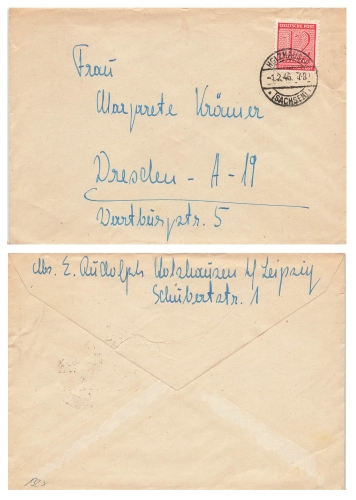 DEUTSCHE POST
12
HOLZHAUSEN
-1.2.46
(SACHSEN)
Frau
Margarete Krämer
Dresden - A - 19
Wartburgstr. 5
Abs. E. Rudolph Holzhausen b/ Leipzig
Schubertstr. 1